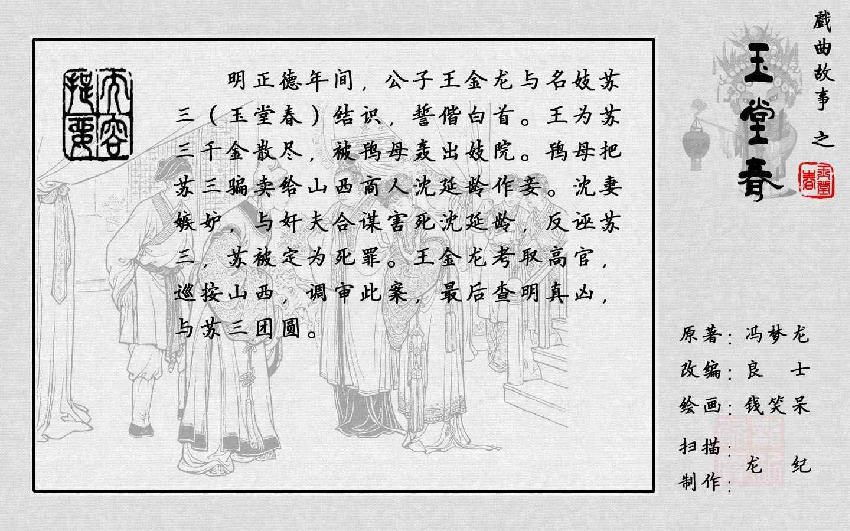 内容
提要
明正德年间，公子王金龙与名妓苏
三（玉堂春）结识，誓偕白首。王为苏
三千金散尽，被鸨母轰出妓院。鸨母把
苏三骗卖给山西商人沈延龄作妾。沈妻
嫉妒，与奸夫合谋害死沈延龄，反诬苏
三，苏被定为死罪。王金龙考取高官，
巡按山西，调审此案，最后查明真凶，
与苏三团圆。
戏曲故事之
玉堂春
原著：冯梦龙
改编：良 士
绘画：钱笑呆
扫描：
制作：
龙 纪